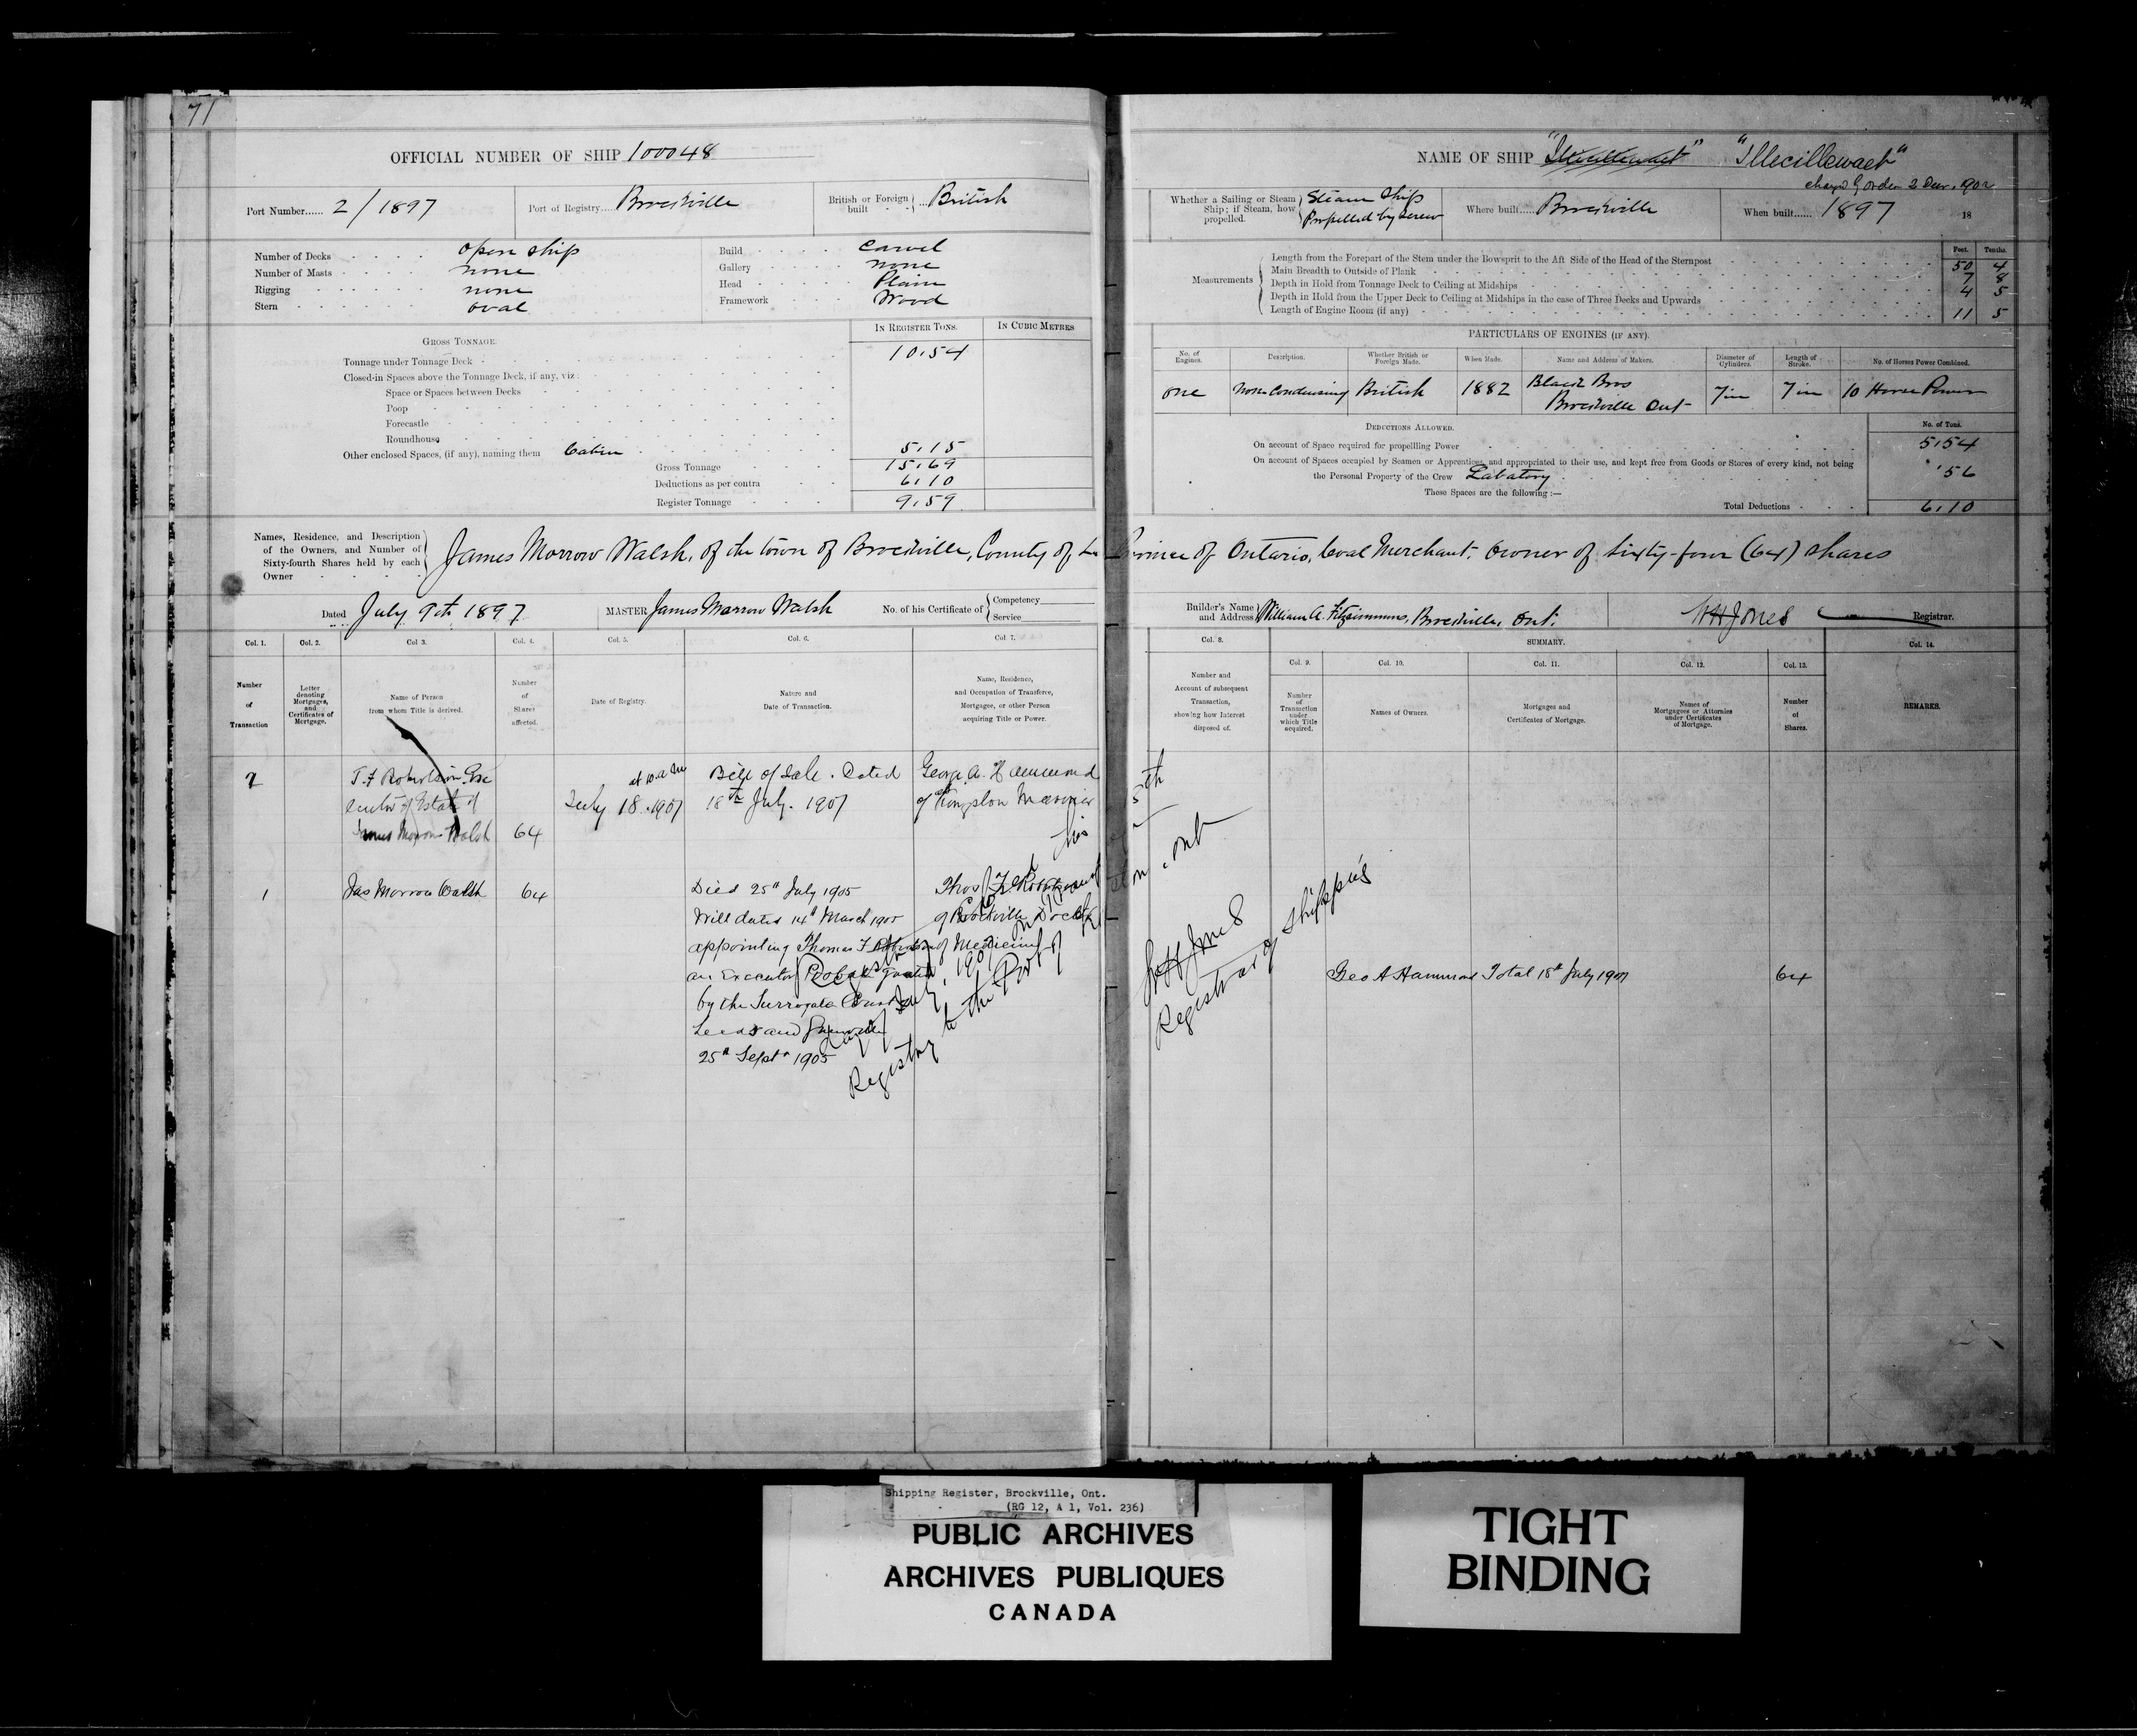 71
OFFICIAL NUMBER OF SHIP 100048
Port Number...... 2/1897
Port of Registry.... Brockville
British or Foreign built ... British
Number of Decks open ship
Number of Masts none
Rigging none
Stern oval
Build Carvel
Gallery none
Head Plain
Framework Wood
GROSS TONNAGE.
IN REGISTER TONS.
IN CUBIC METRES
Tonnage under Tonnage Deck 10.54
Closed-in Spaces above the Tonnage Deck, if any, viz:
Space or Spaces between Decks
Poop
Forecastle
Roundhouse
Other enclosed Spaces, (if any), naming them Cabin 5.15
Gross Tonnage 15.69
Deductions as per contra 6.10
Register Tonnage 9.59
NAME OF SHIP "Illecillewaet"
changed by order 2 Decr. 1902
Whether a Sailing or Steam Ship; if Steam, how propelled. Steam Ship Propelled by screw
Where built.... Brockville
When built...... 1897 18
Measurements
Feet. Tenths.
Length from the Forepart of the Stem under the Bowsprit to the Aft Side of the Head of the Sternpost 50 4
Main Breadth to Outside of Plank 7 8
Depth in Hold from Tonnage Deck to Ceiling at Midships 4 5
Depth in Hold from the Upper Deck to Ceiling at Midships in the case of Three Decks and Upwards
Length of Engine Room (if any) 11 5
PARTICULARS OF ENGINES (IF ANY).
No. of Engines.
Description.
Whether British or Foreign Made.
When Made.
Name and Address of Makers.
Diameter of Cylinders.
Length of Stroke.
No. of Horses Power Combined.
one Non Condensing British 1882 Black Bros Brockville Ont 7 in 7 in 10 Horse Power
DEDUCTIONS ALLOWED.
No. of Tons.
On account of Space required for propellling Power 5.54
On account of Spaces occupied by Seamen or Apprentices, and appropriated to their use, and kept free from Goods or Stores of every kind, not being
the Personal Property of the Crew Labatory .56
These Spaces are the following :—
Total Deductions 6.10
Names, Residence, and Description of the Owners, and Number of Sixty-fourth Shares held by each Owner
James Morrow Walsh, of the town of Brockville, County of Province of Ontario, Coal Merchant, Owner of Sixty-four (64) shares
Dated July 9th 1897
MASTER James Morrow Walsh
No. of his Certificate of Competency Service
Builder's Name and Address William A. Fitzsimmons, Brockville, Ont.
WH Jones Registrar.
Col. 1. Col. 2. Col. 3. Col. 4. Col. 5. Col. 6. Col. 7. Col. 8. SUMMARY. Col. 14.
Col. 9. Col. 10. Col. 11. Col. 12. Col. 13.
Number of Transaction
Letter denoting Mortgages, and Certificates of Mortgage.
Name of Person from whom Title is derived.
Number of Shares affected.
Date of Registry.
Nature and Date of Transaction.
Name, Residence, and Occupation of Transferee, Mortgagee, or other Person acquiring Title or Power.
Number and Account of subsequent Transaction, showing how Interest disposed of.
Number of Transaction under which Title acquired.
Names of Owners.
Mortgages and Certificates of Mortgage.
Names of Mortgagees or Attornies under Certificates of Mortgage.
Number of Shares.
REMARKS.
2
T. F Robertson Exe
cutor of Estate of
James Morrow Walsh
64
at 10 a m
July 18. 1907
Bill of Sale. Dated
18th July. 1907
George A. Hammond
of Kingston Mariner
1
Jas Morrow Walsh
64
Died 25th July 1905
Will dated 14th March 1905
appointing Thomas F Robertson
an Executor Probate granted
by the Surrogate Court
Leeds and Grenville
25th Septr 1905
Thos F. Robertson
of Brockville Doctor
of Medicine
Registry to the Port of
Ont
WH Jones
Registrar of Shipping
Geo A Hammond Total 18th July 1907 64
Shipping Register, Brockville, Ont.
(RG 12, A 1, Vol. 236)
PUBLIC ARCHIVES
ARCHIVES PUBLIQUES
CANADA
TIGHT
BINDING